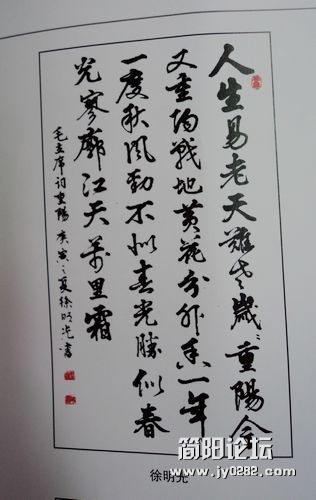 人生易老天難老歲歲重陽今
又重陽戰地黄花分外香一年
一度秋風勁不似春光勝似春
光寥廓江天萬里霜
毛主席词重陽 庚寅之夏徐明光書
徐明光
简阳论坛
www.jy0282.com